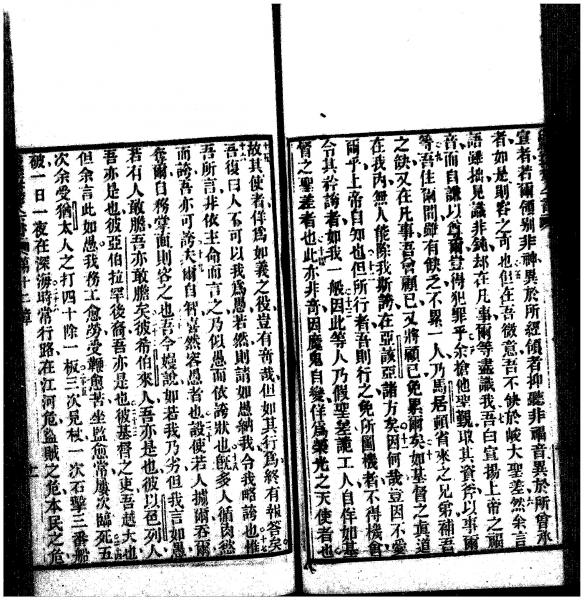 宣者若爾領别非神異於所經領者抑聽非福音異於所曾承
者如是則容之可也但在吾微意吾不缺於峻大聖差然余言
語雖拙見識非鈍却在凡事爾等盡識我吾白宣揚上帝之福
音而自謙以爲爾豈得犯罪乎余搶他聖覡取其資斧以事爾
等吾住爾間雖有缺之不累一人乃馬居頓省來之兄弟補吾
之缺又在凡事吾曾顧已又將顧已免累爾矣如基督之真道
在我内無人能除我斯誇在亞該亞諸方矣因何哉豈因不愛
爾乎上帝自知也但所行者吾則行之免所圖機者不得機會
合其矜誇者如我一般因此等人乃假聖差詭工人自佯如基
督之聖差者也此亦非奇因魔鬼自變佯爲榮光之天使者也
故其使者佯爲如義之役豈有奇哉但如其行爲終有報答矣
吾復曰人不可以我爲愚若然則請如愚納我令我略誇也惟
吾所言非依主命而言之乃似愚而依誇狀也旣多人循肉然
而誇吾亦可誇夫爾自智喜然容愚者也設使若人擄爾吞爾
奪爾自務掌面則容之也吾今嫚說如若我乃劣但我言如愚
若有人敢膽吾亦敢膽矣彼希伯來人吾亦是也彼以色列人
吾亦是也彼亞伯拉罕後裔吾亦是也彼基督之吏吾越大也
但余言此如愚我務工愈勞受鞭愈苦坐監愈常屢次臨死五
次余受猶太人之打四十除一板三次見杖一次石擊三番船
破一日一夜在深海時常行路在江河危盜賊之危本民之危